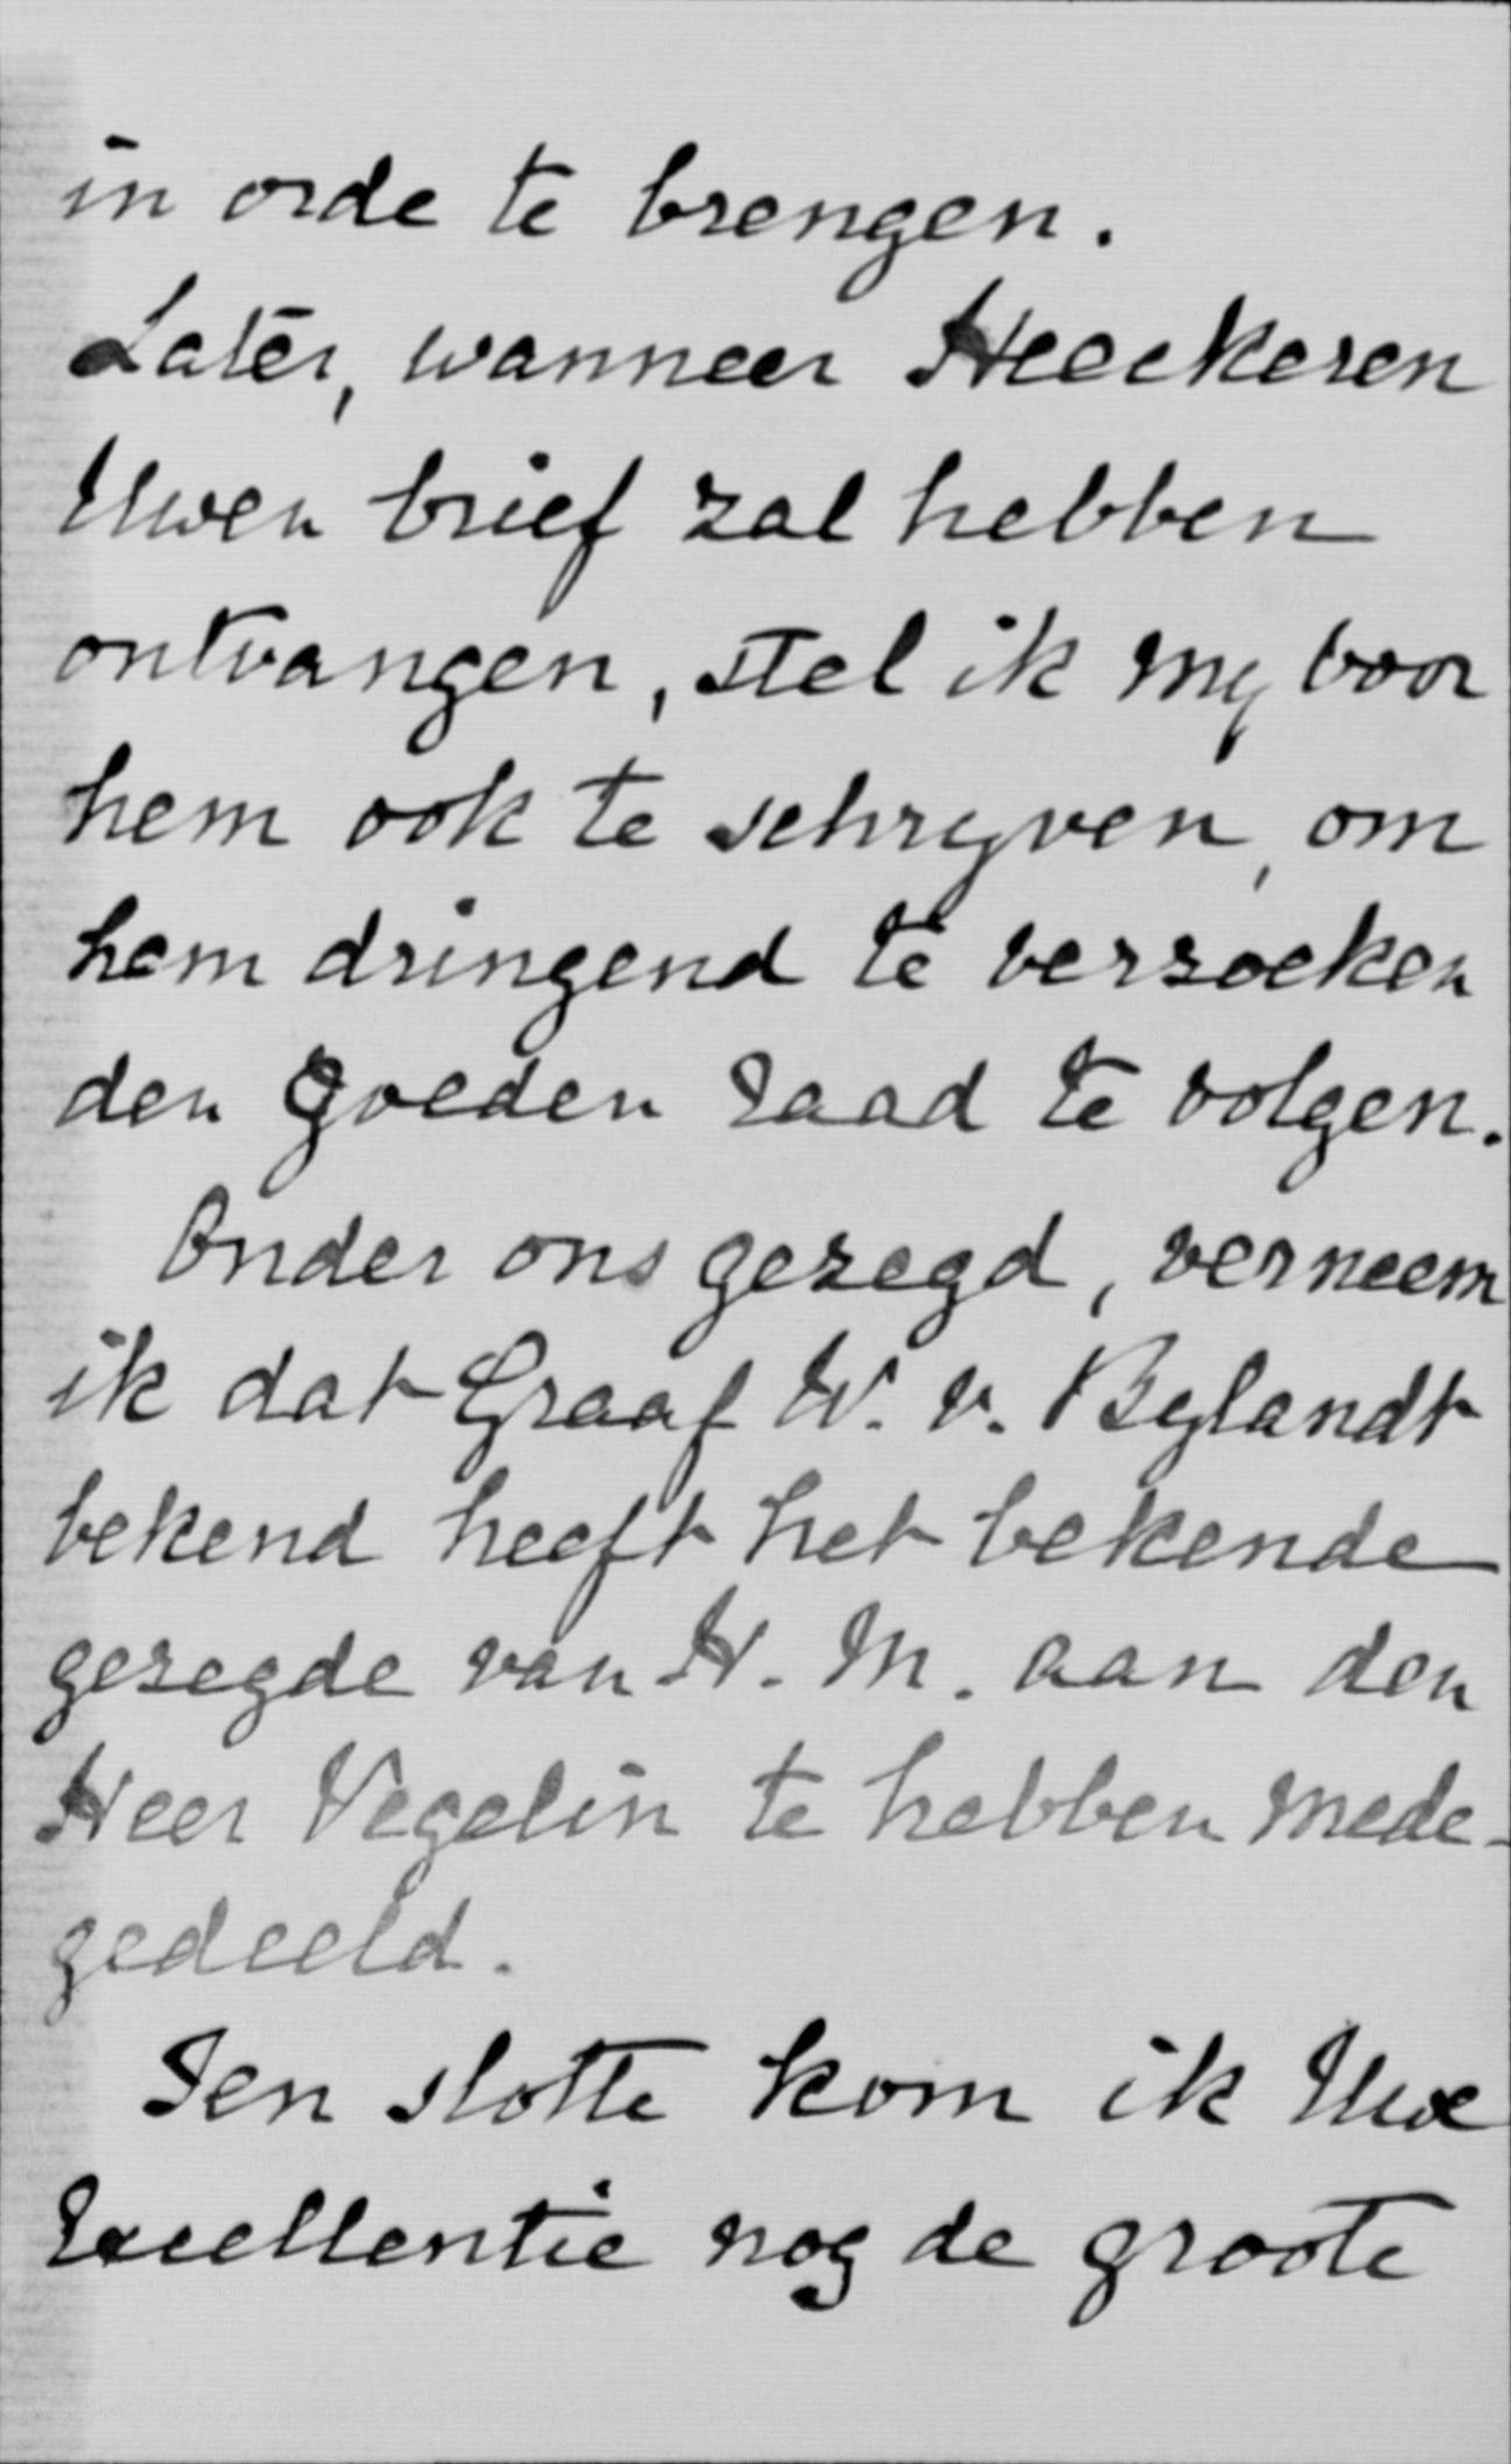 in orde te brengen.
Later, wanneer Heeckeren
Uwen brief zal hebben
ontvangen, stel ik my voor
hem ook te schryven, om
hem dringend te verzoeken
den goeden raad te volgen.
Onder ons gezegd, verneem
ik dat Graaf W. v. Bylandt
bekend heeft het bekende
gezegde van H. M. aan den
Heer Vegelin te hebben mede-
gedeeld.
Ten slotte kom ik Uwe
Excellentie nog de groote